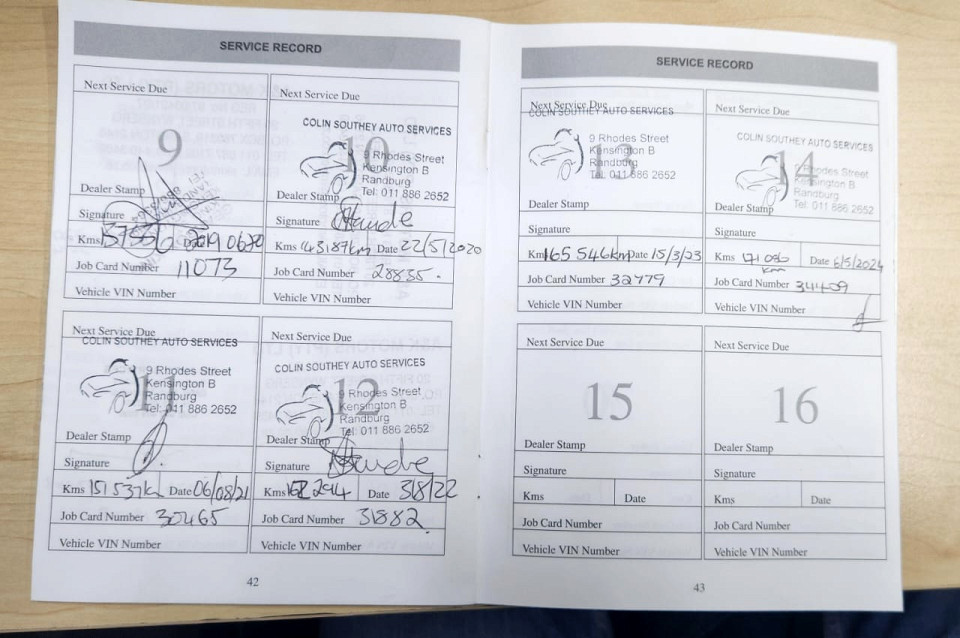 SERVICE RECORD
Next Service Due
9
Dealer Stamp
Signature
Kms Date
Job Card Number 11073
Vehicle VIN Number
Next Service Due
COLIN SOUTHEY AUTO SERVICES
10
9 Rhodes Street
Kensington B
Randburg
Dealer Stamp
Tel: 011 886 2652
Signature
Kms 143187km Date 22/5/2020
Job Card Number 28835.
Vehicle VIN Number
Next Service Due
COLIN SOUTHEY AUTO SERVICES
11
9 Rhodes Street
Kensington B
Randburg
Tel: 011 886 2652
Dealer Stamp
Signature
Kms 151537km Date 06/08/21
Job Card Number 30465
Vehicle VIN Number
Next Service Due
COLIN SOUTHEY AUTO SERVICES
12
9 Rhodes Street
Kensington B
Randburg
Tel: 011 886 2652
Dealer Stamp
Signature
Kms 158 294 Date 3/8/22
Job Card Number 31882
Vehicle VIN Number
42
SERVICE RECORD
Next Service Due
COLIN SOUTHEY AUTO SERVICES
13
9 Rhodes Street
Kensington B
Randburg
Tel: 011 886 2652
Dealer Stamp
Signature
Kms 165 546km Date 15/3/23
Job Card Number 32779
Vehicle VIN Number
Next Service Due
COLIN SOUTHEY AUTO SERVICES
14
9 Rhodes Street
Kensington B
Randburg
Tel: 011 886 2652
Dealer Stamp
Signature
Kms 171 086 km Date 6/5/2024
Job Card Number 34409
Vehicle VIN Number
Next Service Due
15
Dealer Stamp
Signature
Kms Date
Job Card Number
Vehicle VIN Number
Next Service Due
16
Dealer Stamp
Signature
Kms Date
Job Card Number
Vehicle VIN Number
43